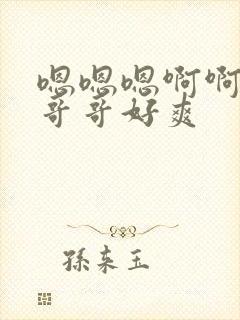 嗯嗯嗯啊啊
哥哥好爽
孫来玉